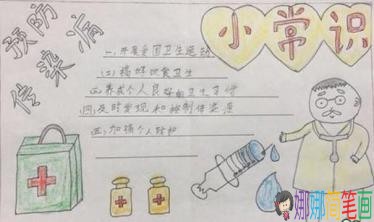 预防
传染病
小常识
一、开展爱国卫生运动
(二)搞好饮食卫生
三、养成个人良好的卫生习惯
四、及时发现和控制传染源
五、加强个人防护
娜娜简笔画